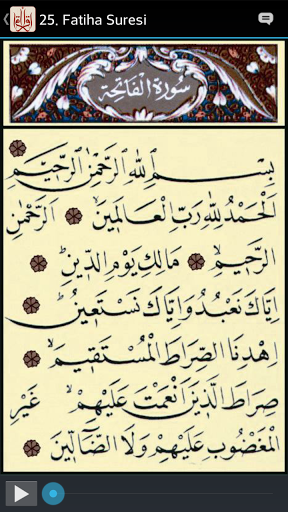 25. Fatiha Suresi
سُورَةُ الْفَاتِحَةِ
بِسْمِ اللّٰهِ الرَّحْمٰنِ الرَّحِيمِ
اَلْحَمْدُ لِلّٰهِ رَبِّ الْعَالَمِينَۙ اَلرَّحْمٰنِ
الرَّحِيمِۙ مَالِكِ يَوْمِ الدِّينِۜ
اِيَّاكَ نَعْبُدُ وَاِيَّاكَ نَسْتَعِينُۜ
اِهْدِنَا الصِّرَاطَ الْمُسْتَقِيمَۙ
صِرَاطَ الَّذِينَ اَنْعَمْتَ عَلَيْهِمْۙ غَيْرِ
الْمَغْضُوبِ عَلَيْهِمْ وَلَا الضَّٓالِّينَ